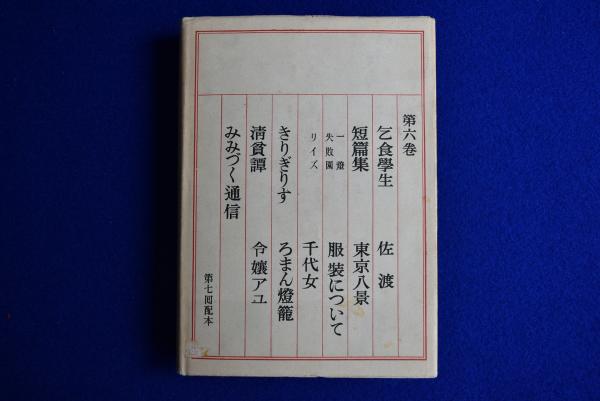 第六卷
乞食學生
佐渡
短篇集
一燈
失敗園
リイズ
東京八景
服裝について
きりぎりす
千代女
淸貧譚
ろまん燈籠
みみづく通信
令孃アユ
第七囘配本